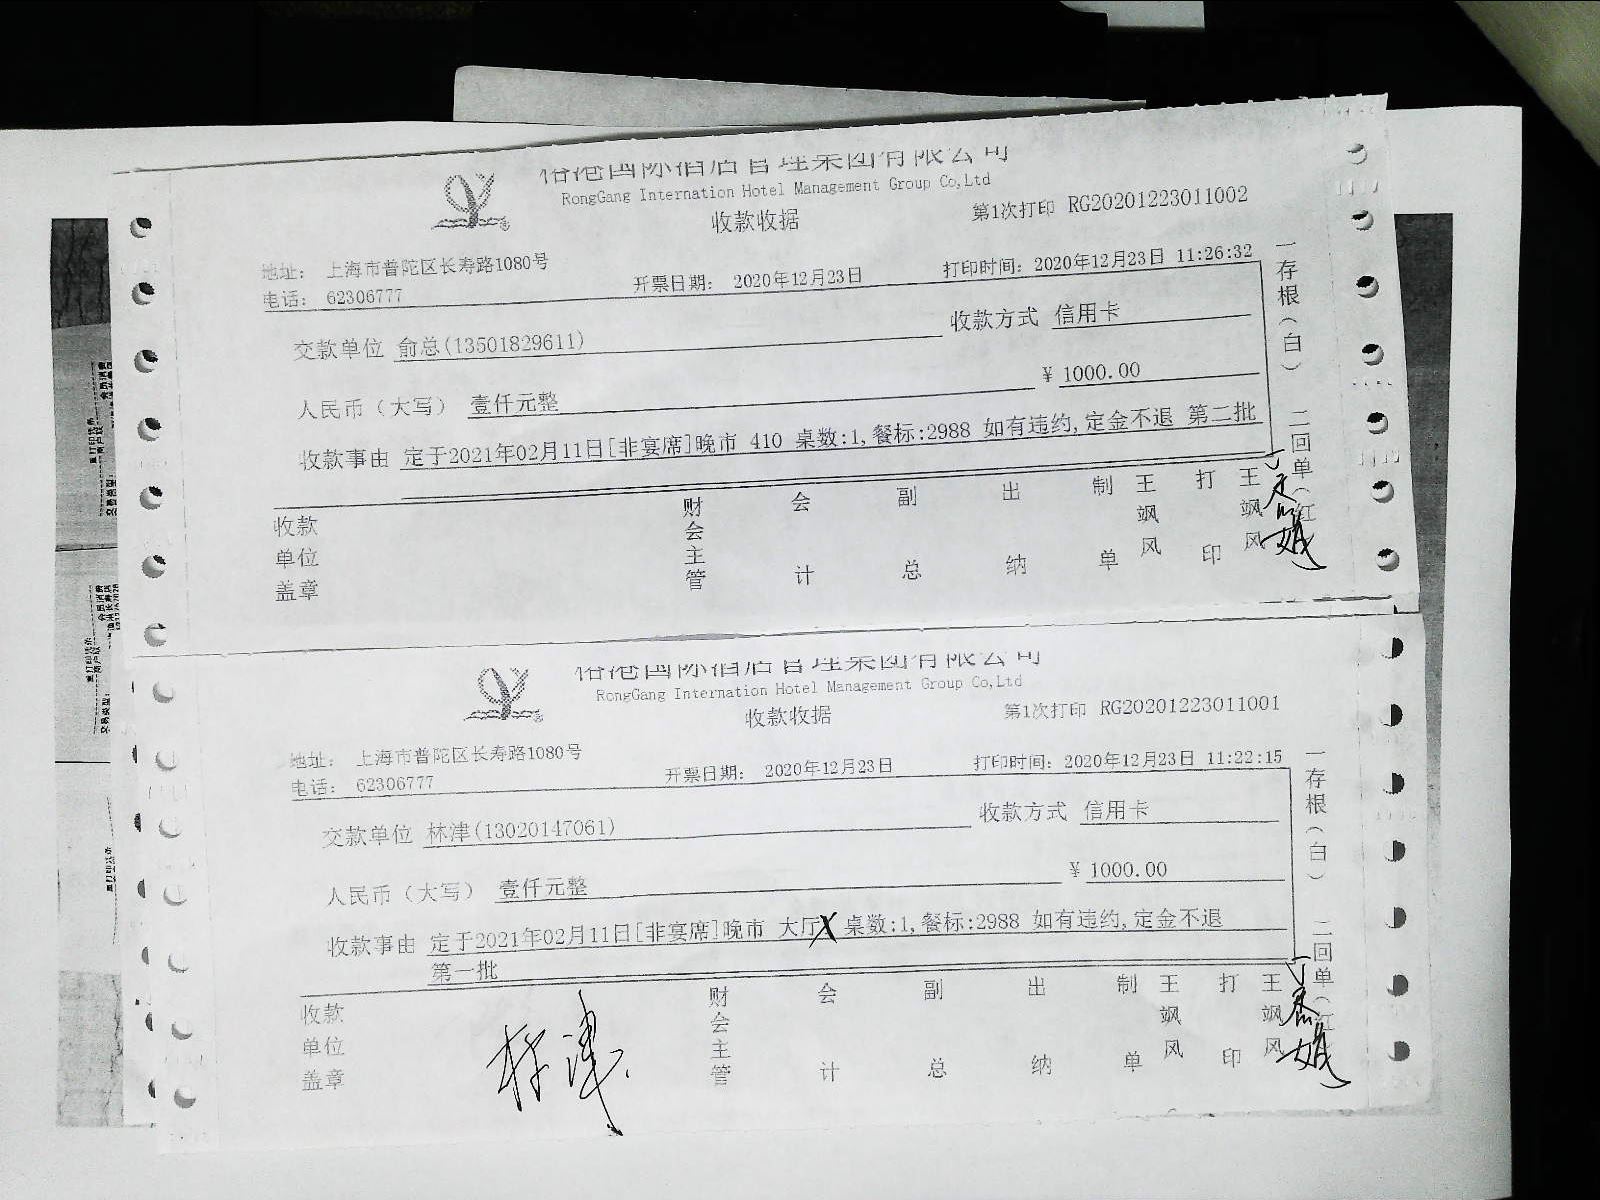 RongGang Internation Hotel Management Group Co,Ltd
收款收据
第1次打印 RG20201223011002
地址： 上海市普陀区长寿路1080号
电话： 62306777
开票日期： 2020年12月23日
打印时间：2020年12月23日 11:26:32
交款单位 俞总(13501829611)
收款方式 信用卡
人民币（大写） 壹仟元整
¥ 1000.00
收款事由 定于2021年02月11日[非宴席]晚市 410 桌数:1,餐标:2988 如有违约,定金不退 第二批
收款单位盖章
财会主管
会计
副总
出纳
制单
王飒风
打印
王飒风
一存根（白） 二回单（红
RongGang Internation Hotel Management Group Co,Ltd
收款收据
第1次打印 RG20201223011001
地址： 上海市普陀区长寿路1080号
电话： 62306777
开票日期： 2020年12月23日
打印时间：2020年12月23日 11:22:15
交款单位 林津(13020147061)
收款方式 信用卡
人民币（大写） 壹仟元整
¥ 1000.00
收款事由 定于2021年02月11日[非宴席]晚市 大厅X 桌数:1,餐标:2988 如有违约,定金不退
第一批
收款单位盖章
林津
财会主管
会计
副总
出纳
制单
王飒风
打印
王飒风
一存根（白） 二回单（红